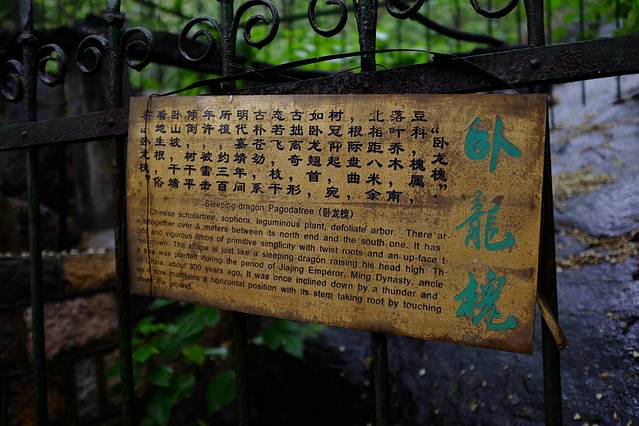 卧龙槐
“卧龙槐”
豆科，槐属，
落叶乔木，南
北相距八米余，
根际盘曲，宛
如卧龙翘首，
古拙离奇，形
态若飞
古朴苍劲，系
明代嘉靖年间
所植，约三百
年许，
Sleeping-dragon Pagodatree (卧龙槐)
Chinese scholartree, sophora, leguminous plant, defoliate arbor. There ar
altogether over 8 meters between its north end and the south one. It has
and vigorous limbs of primitive simplicity with twist roots and an up-face t
crown. This shape is just like a sleeping dragon raising his head high. Th
tree was planted during the period of Jiajing Emperor, Ming Dynasty, ancie
China, about 300 years ago. It was once inclined down by a thunder and
now maintains a horizontal position with its stem taking root by touching
the ground.